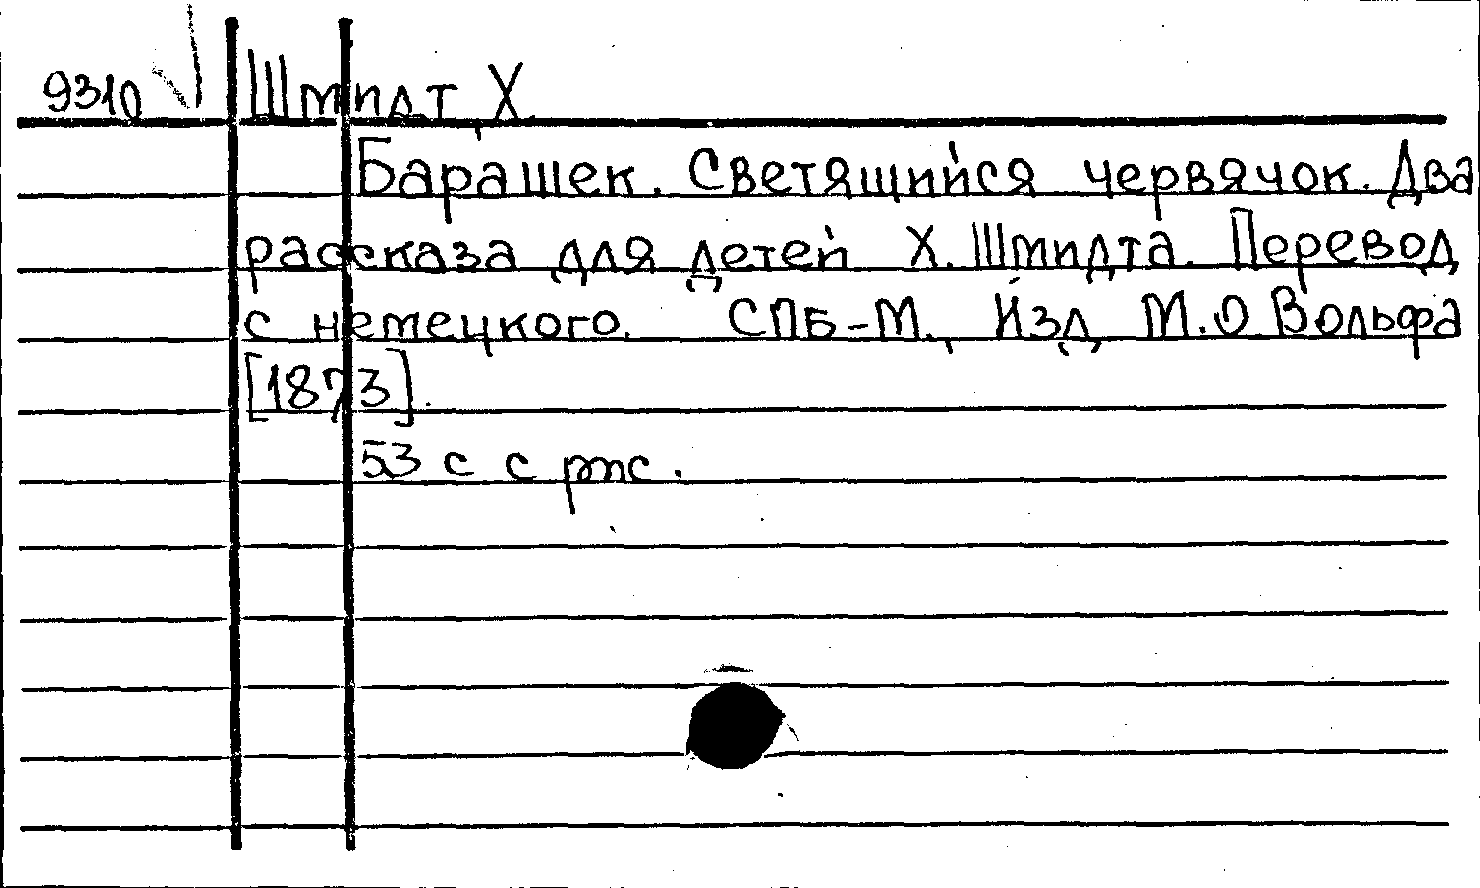 9310 Шмидт, Х.
Барашек. Светящийся червячок. Два
рассказа для детей Х. Шмидта. Перевод
с немецкого. СПБ-М., Изд. М.О Вольфа
[1873].
53 с с рис.